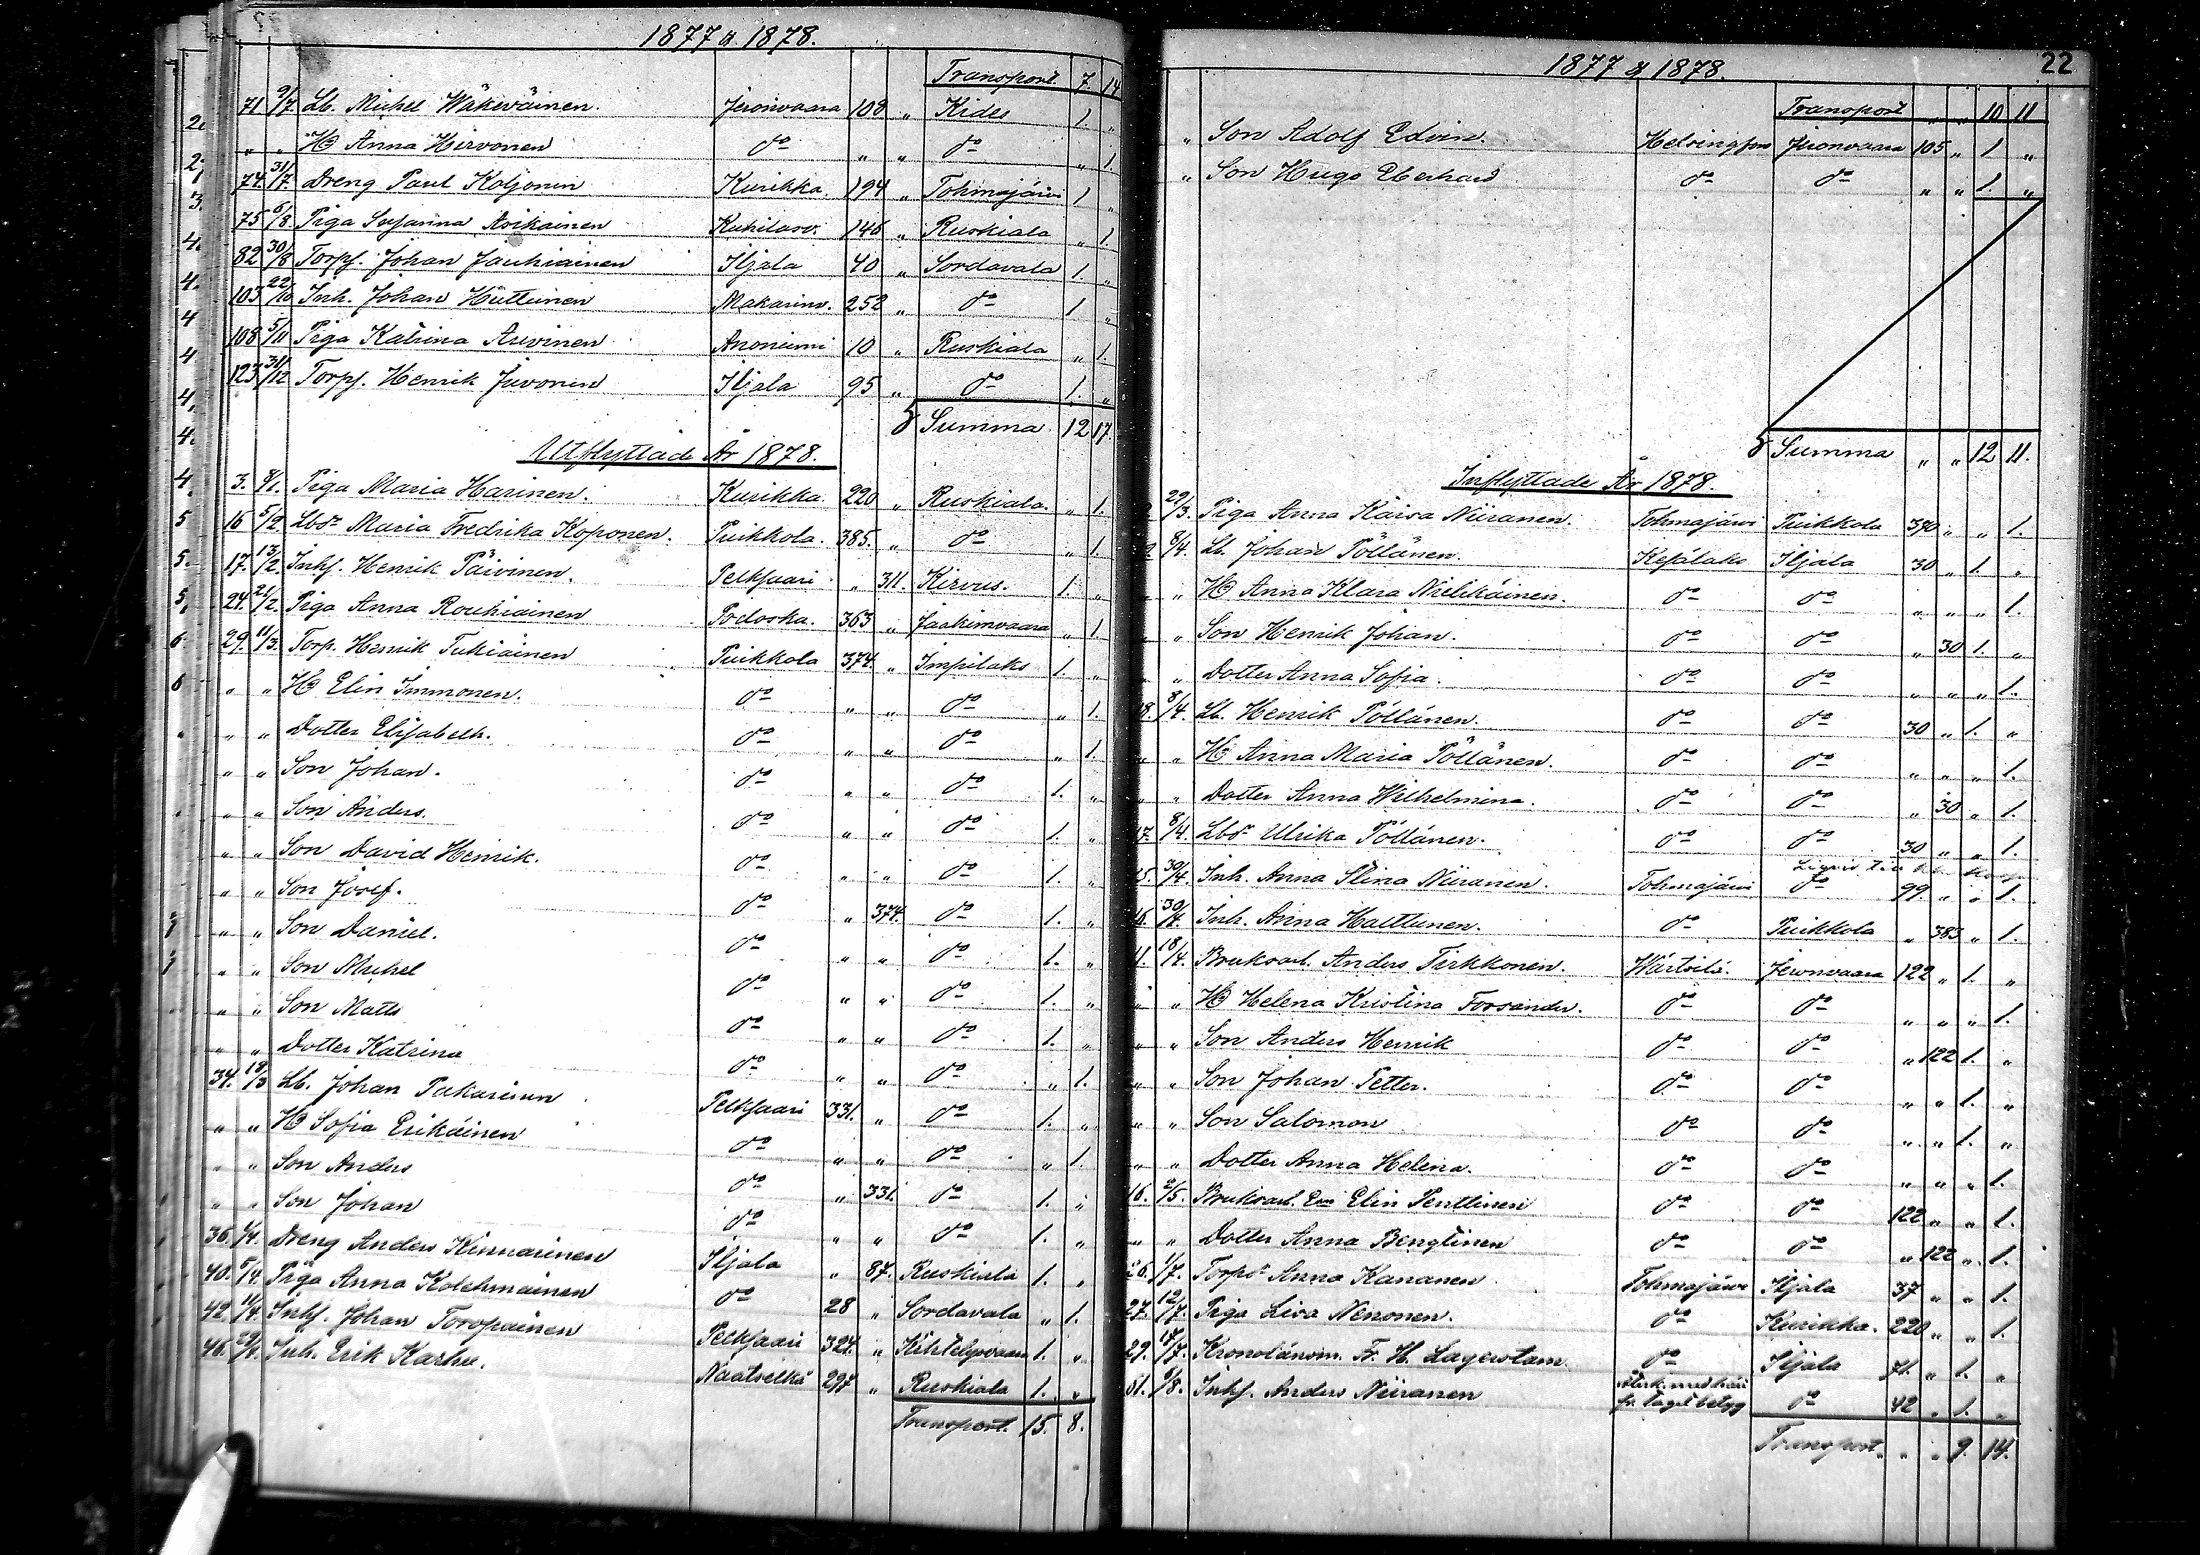 1877 & 1878.
Transport 7 14
71 9/7 Lb. Michel Wäkeväinen. Jeronvaara 108 „ Kides 1. „
„ „ H Anna Hirvonen do „ „ do „ 1.
74. 31/7 Dreng Paul Koljonen Kurikka. 194 „ Tohmajärvi 1 „
75 6/8 Piga Susanna Asikainen Kuhilasv. 146 „ Ruskiala „ 1.
82 30/8 Torpf. Johan Jauhiainen Iljala 40 „ Sordavala 1. „
103 22/10 Inh. Johan Huttunen Makarinv. 252 „ do 1 „
108 5/11 Piga Katrina Asvinen Anoniemi 10 „ Ruskiala „ 1.
123 31/12 Torpf. Henrik Juvonen Iljala 95 „ do 1. „
Summa 12 17.
Utflyttade År 1878.
3. 8/1. Piga Maria Harinen. Kurikka. 220 „ Ruskiala. „ 1.
16 5/2. Lbdr Maria Fredrika Koponen. Puikkola. 385. „ do „ 1.
17. 13/2. Inhf. Henrik Päivinen. Pelkjaari „ 311. Kirvus. 1. „
24. 21/2. Piga Anna Rouhiainen Podoska. 363 „ Jaakimvaara „ 1
29. 11/3. Torp. Henrik Tukiainen Puikkola 374. „ Impilaks 1. „
„ „ H Elin Immonen. do „ „ do „ 1.
„ „ Dotter Elisabeth. do „ „ do „ 1.
„ „ Son Johan. do „ „ do 1. „
„ „ Son Anders. do „ „ do 1. „
„ „ Son David Henrik. do „ „ do 1. „
„ „ Son Josef. do „ 374. do 1. „
„ „ Son Daniel. do „ „ do 1. „
„ „ Son Michel do „ „ do 1. „
„ „ Son Matts do „ „ do 1. „
„ „ Dotter Katrina do „ „ do „ 1.
34. 18/3 Lb. Johan Pakarinen Pelkjaari 331. „ do 1. „
„ „ H Sofia Erikäinen do „ „ do „ 1.
„ „ Son Anders do „ 331. do 1. „
„ „ Son Johan do „ „ do 1. „
36. 1/4. Dreng Anders Kinnarinen Iljala „ 87. Ruskiala 1. „
40. 5/4. Piga Anna Kolehmainen do 28 „ Sordavala „ 1.
42. 11/4. Inhf. Johan Toropainen Pelkjaari 324. „ Kihtelysvaara 1. „
46. Inh. Erik Karhu. Naatselkä 297 „ Ruskiala 1. „
Transport. 15. 8.
22
1877 & 1878.
Transport „ „ 10 11
„ Son Adolf Edvin. Helsingfors Jeronvaara 105 „ 1 „
„ Son Hugo Eberhard do do „ „ 1. „
Summa „ „ 12 11.
Inflyttade År 1878.
22/3. Piga Anna Kaisa Niiranen. Tohmajärvi Puikkola 370 „ „ 1.
8/4. Lb. Johan Pöllänen. Kesälaks Iljala 30 „ 1. „
„ H Anna Klara Nielikäinen. do do „ „ „ 1.
„ Son Henrik Johan. do do „ 30 1. „
„ Dotter Anna Sofia. do do „ „ „ 1.
8/4. Lb. Henrik Pöllänen. do do 30 „ 1. „
„ H Anna Maria Pöllänen. do do „ „ „ 1.
„ „ Dotter Anna Wilhelmina. do do „ 30 „ 1.
17. 8/4. Lbdr Ulrika Pöllänen. do do 30 „ „ 1.
30/4. Inh. Anna Stina Niiranen. Tohmajärvi do 99. „ „ 1.
30/4. Inh. Anna Halttunen. do Puikkola „ 383 „ 1.
11. 18/4. Bruksarb. Anders Tirkkonen. Wärtsilä. Jeronvaara 122 „ 1. „
„ „ H Helena Kristina Forsander. do do „ „ „ 1.
„ „ Son Anders Henrik do do „ 122 1. „
„ „ Son Johan Petter. do do „ „ 1. „
„ „ Son Salomon do do „ „ 1. „
„ „ Dotter Anna Helena. do do „ „ „ 1.
16. 2/5. Bruksarb. Enk. Elin Penttinen do do 122 „ „ 1.
„ „ Dotter Anna Bengtinen do do „ 122 „ 1.
26. 1/7. Torpdr Anna Kananen Tohmajärvi Iljala 37 „ „ 1.
27. 12/7. Piga Lisa Nenonen. do Kurikka. 220 „ „ 1.
29. 17/7. Kronolänsm. Fr. H. Lagerstam do Iljala 71. „ 1. „
31. 9/8. Inhf. Anders Niiranen do 42 „ 1. „
Transport. „ „ 9. 14.